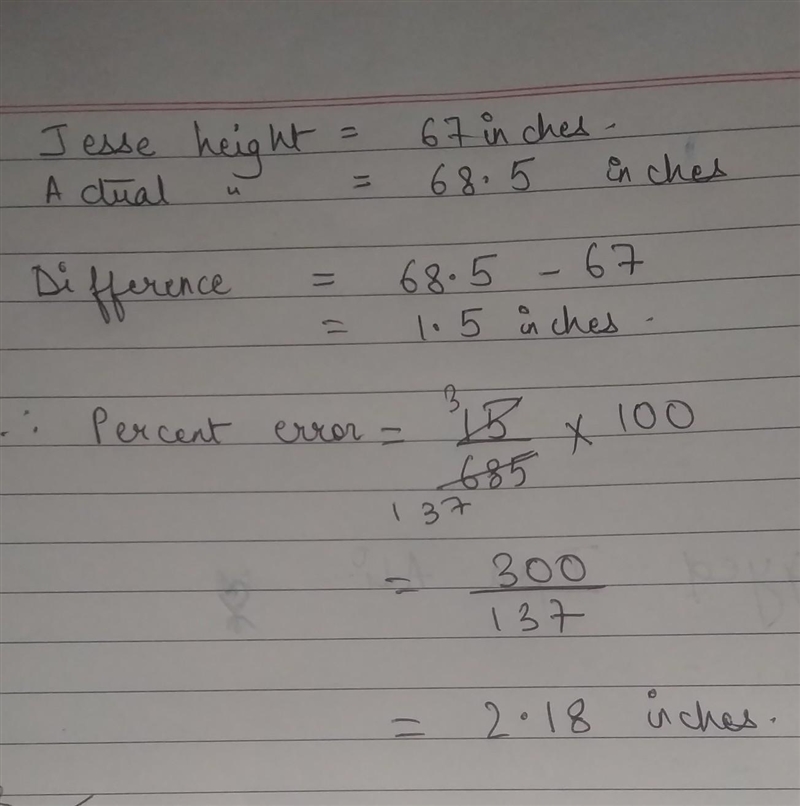 Jesse height = 67 inches.
Actual " = 68.5 inches
Difference = 68.5 - 67
= 1.5 inches.
∴ Percent error = 3 15/685 137 × 100
= 300/137
= 2.18 inches.